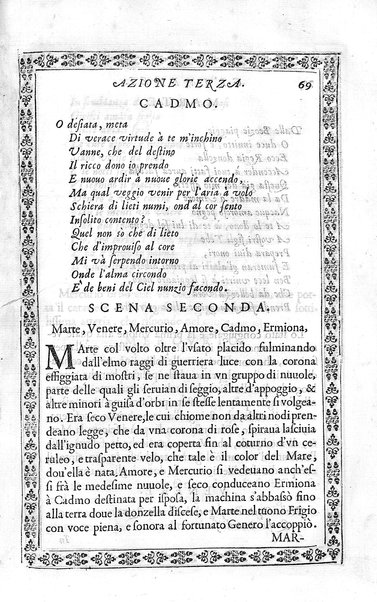 AZIONE TERZA. 69
CADMO.
O desiata, meta
Di verace virtude à te m'inchino
Vanne, che del destino
Il ricco dono io prendo
E nuouo ardir à nuoue glorie accendo,
Ma qual veggio venir per l'aria à volo
Schiera di lieti numi, ond'al cor sento
Insolito contento?
Quel non sò che di lieto
Che d'improuiso al core
Mi và serpendo intorno
Onde l'alma circondo
E' de beni del Ciel nunzio facondo.
SCENA SECONDA.
Marte, Venere, Mercurio, Amore, Cadmo, Ermiona,
MArte col volto oltre l'vsato placido fulminando
dall'elmo raggi di guerriera luce con la corona
effiggiata di mostri, se ne staua in vn gruppo di nuuole,
parte delle quali gli seruian di seggio, altre d'appoggio, &
altre minori à guisa d'orbi in se stesse lentamente si volgea-
no. Era seco Venere, le cui chiome non da altri nodi pren-
deano legge, che da vna corona di rose, spiraua lasciuia
dall'ignudo petto, ed era coperta fin al coturno d'vn ce-
ruleo, e trasparente velo, che tale è il color del Mare,
dou'ella è nata, Amore, e Mercurio si vedeuano anch'es-
si frà le medesime nuuole, e seco conduceano Ermiona
à Cadmo destinata per isposa, la machina s'abbassò fino
alla terra doue la donzella discese, e Marte nel tuono Frigio
con voce piena, e sonora al fortunato Genero l'accoppiò.
MAR-